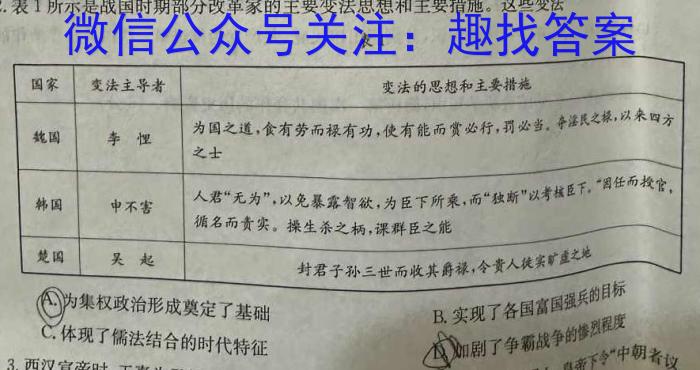 2. 表1所示是战国时期部分改革家的主要变法思想和主要措施。这些变法
微信公众号关注：趣找答案
国家 变法主导者 变法的思想和主要措施
魏国 李悝 为国之道,食有劳而禄有功,使有能而赏必行,罚必当。夺淫民之禄,以来四方
之士
韩国 申不害 人君“无为”,以免暴露智欲,为臣下所乘,而“独断”以考核臣下。“因任而授官,
循名而责实。操生杀之柄,课群臣之能
楚国 吴起 封君子孙三世而收其爵禄,令贵人徙实旷虚之地
A. 为集权政治形成奠定了基础
B. 实现了各国富国强兵的目标
C. 体现了儒法结合的时代特征
D. 加剧了争霸战争的惨烈程度
3. 西汉宣帝时,
皇帝下令“中朝者议